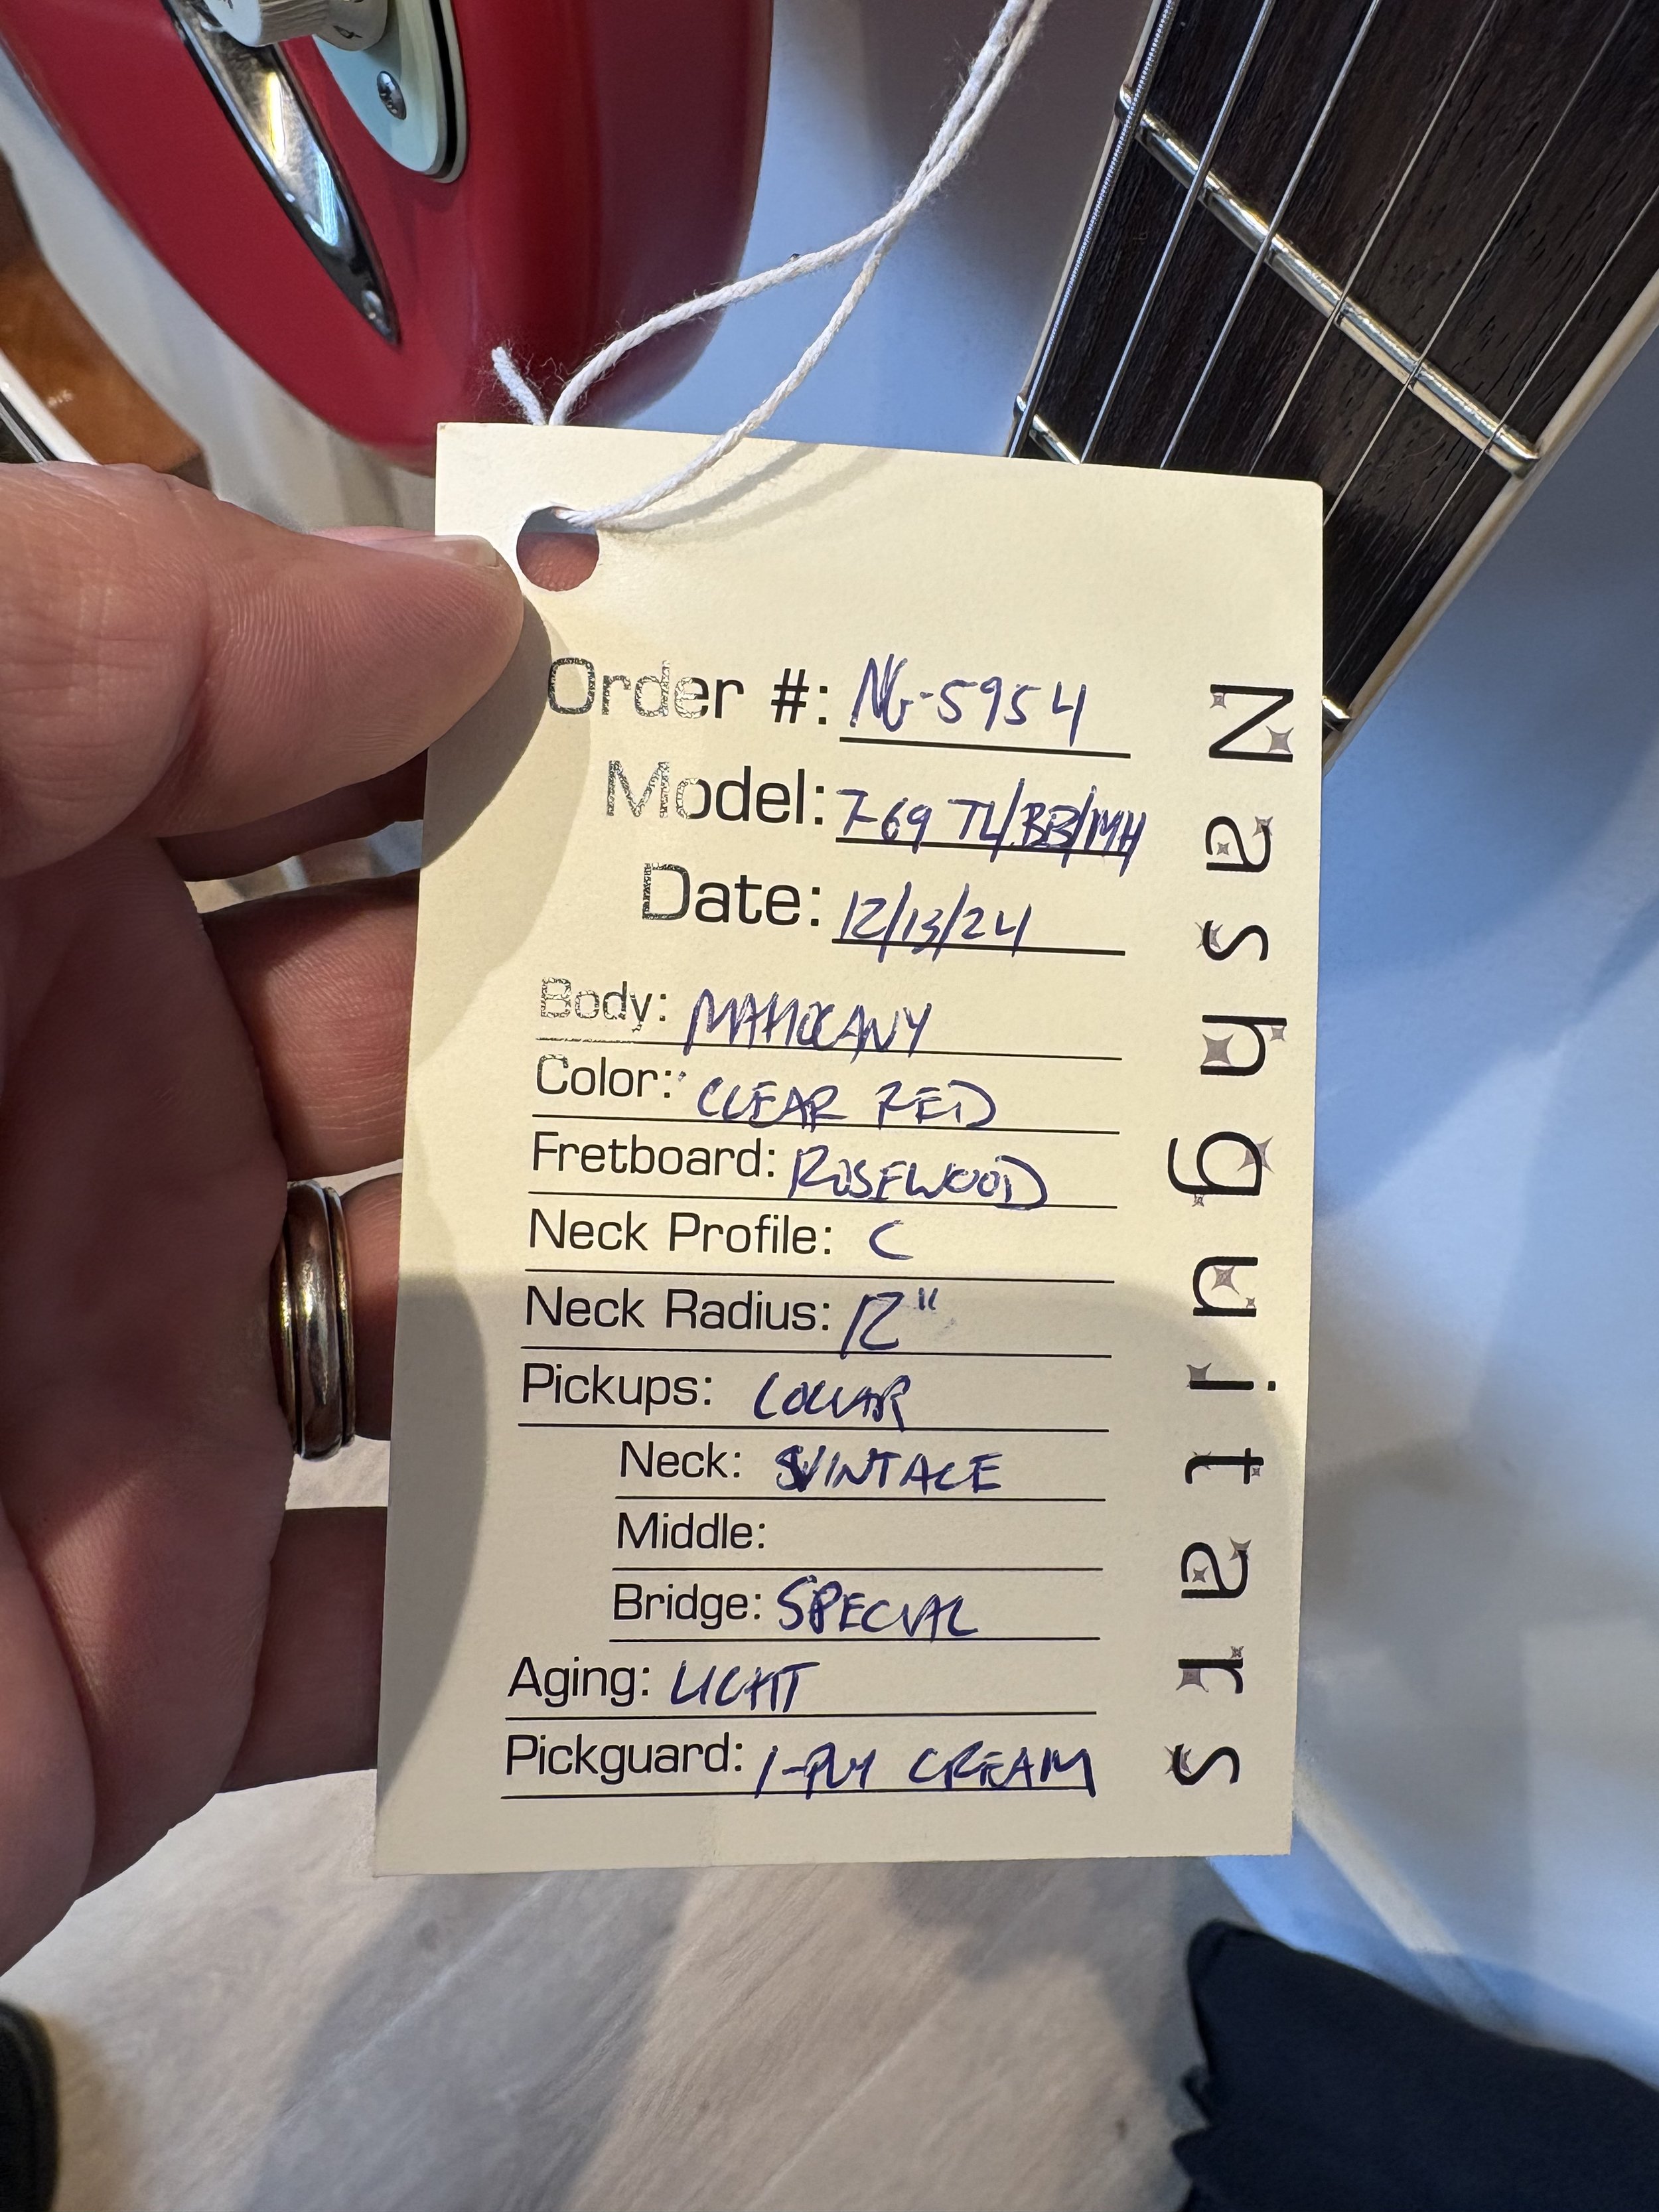 Order #: NG-5954
Model: T-69 TL/BB/MH
Date: 12/13/24
Body: MAHOGANY
Color: CLEAR RED
Fretboard: ROSEWOOD
Neck Profile: C
Neck Radius: 12"
Pickups: LOLLAR
Neck: VINTAGE
Middle:
Bridge: SPECIAL
Aging: LIGHT
Pickguard: 1-PLY CREAM
Nashguitars